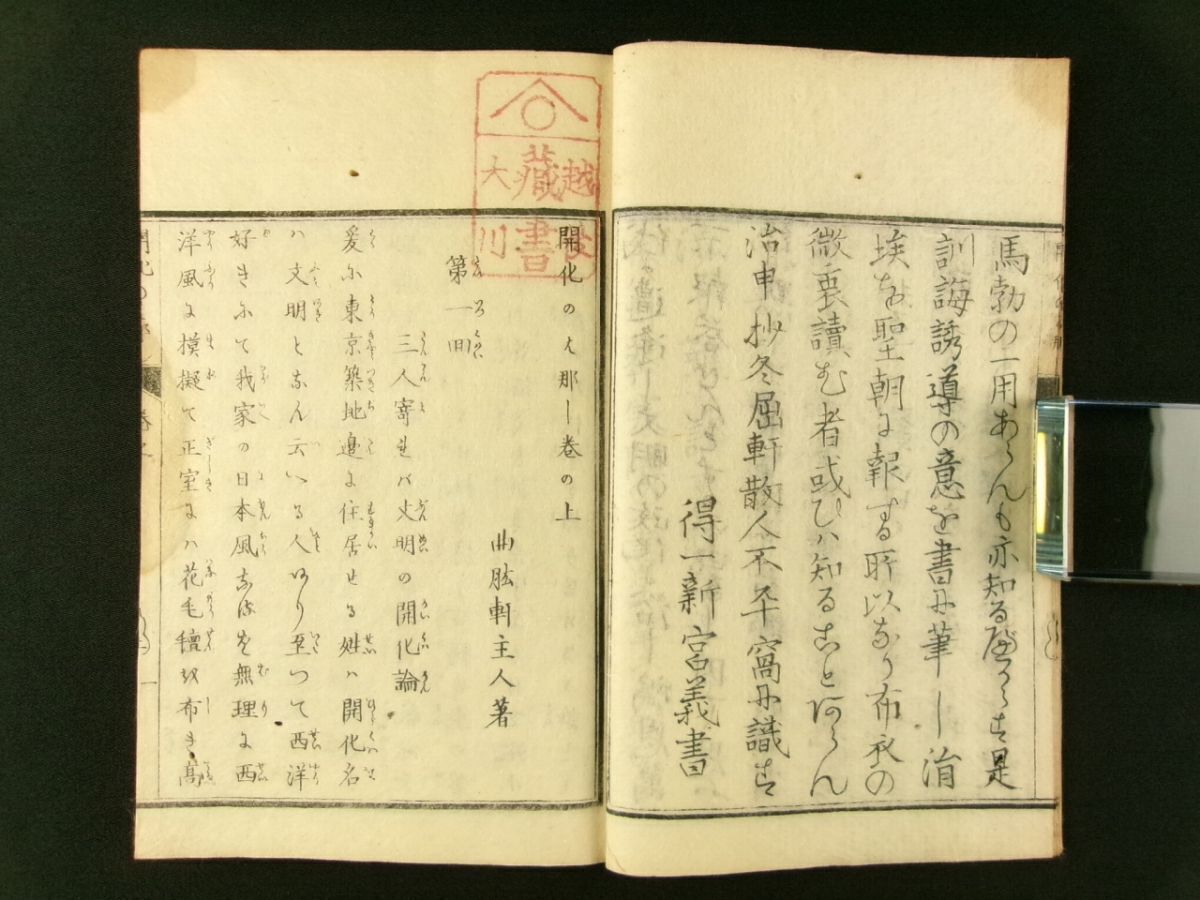 馬勃の一用あらんも亦知る可からす是
訓誨誘導の意を書に筆し涓
埃を聖朝に報する所以なり布衣の
微衷讀む者或ひハ知ることあらん
治申抄冬屈軒散人不卒窩に識す
得一新宮義書
越
藏書
大川
開化のはなし巻の上
曲肱軒主人著
第一回
三人寄れバ文明の開化論
爰に東京築地邊に住居せる姓ハ開化名
ハ文明となん云へる人あり至つて西洋
好きにて我家の日本風なるを無理に西
洋風に模擬て正室にハ花毛氊を布き高